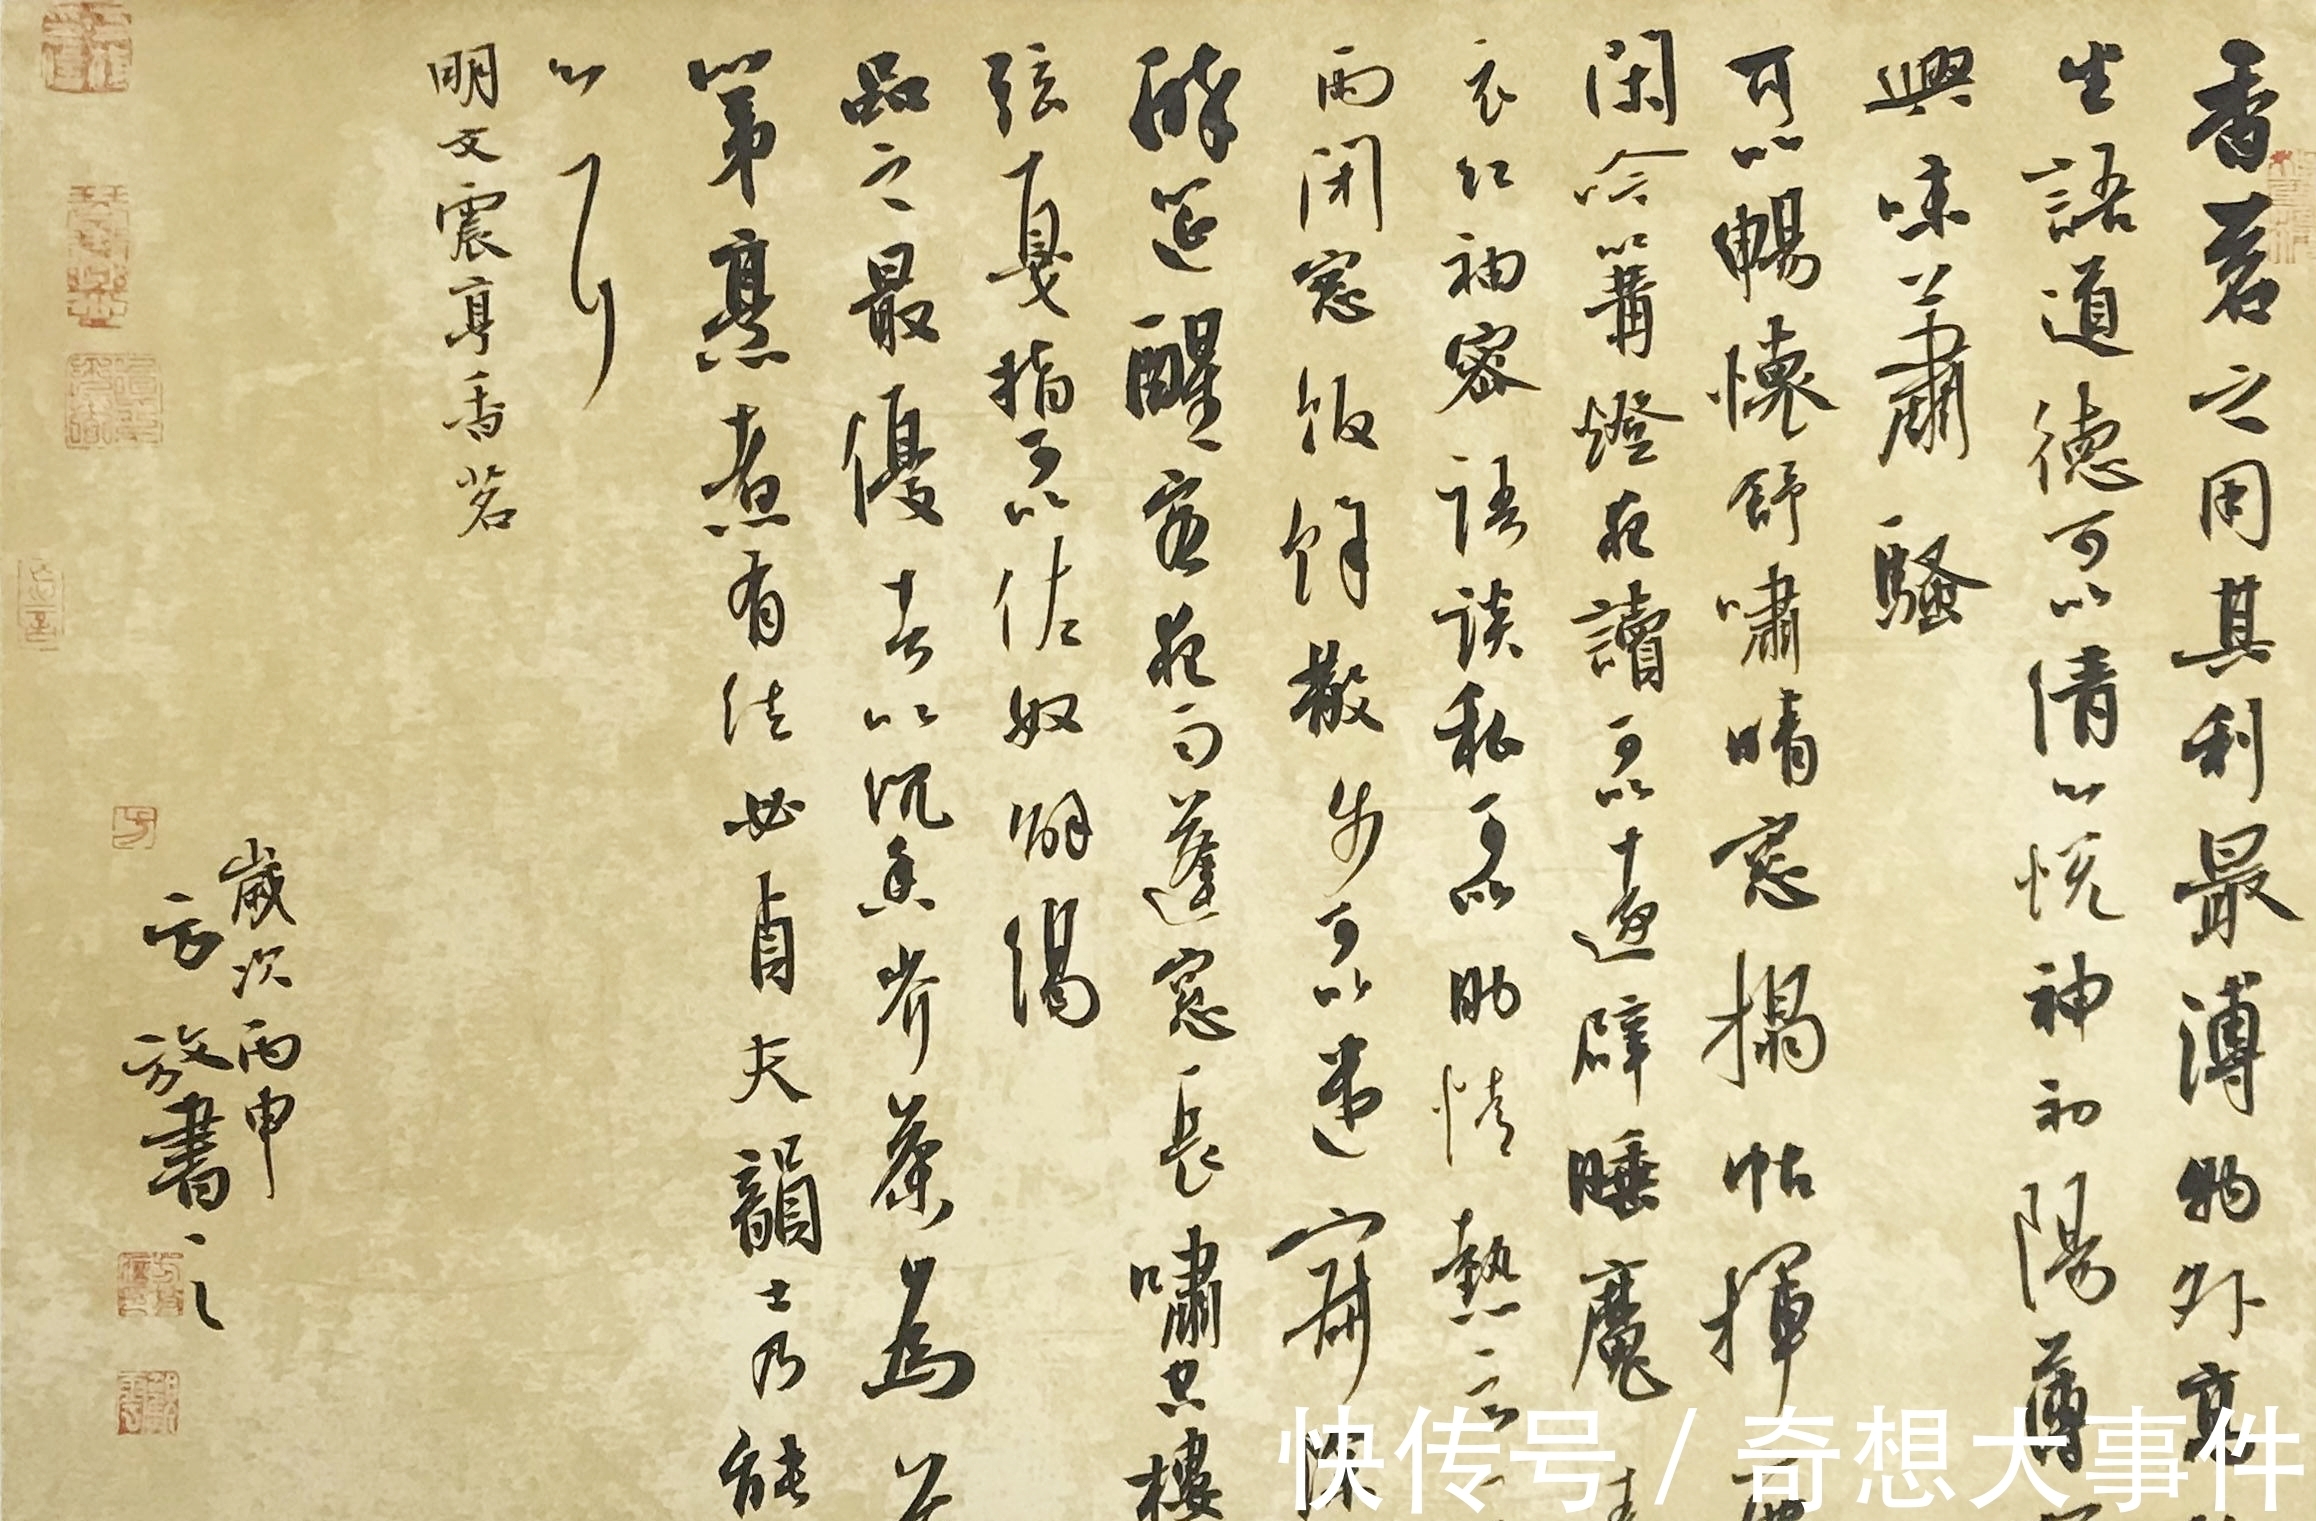 香茗之用其利最溥物外高
坐語道德可以清心悅神初陽薄
興味蕭騷
可以暢懷舒嘯晴窓搨帖揮
閑吟篝燈夜讀可以遠辟睡魔
衣紅袖密語談私可以助情熱意
雨閉窓飯餘散步可以遣寂除
醉筵醒客夜雨蓬窓長嘯空樓
弦戛指可以佐歡解渴
品之最優者以沉香岕茶為首
第烹煮有法必貞夫韻士乃能
心耳
明文震亨香茗
歲次丙申
放書之
快传号/奇想大事件